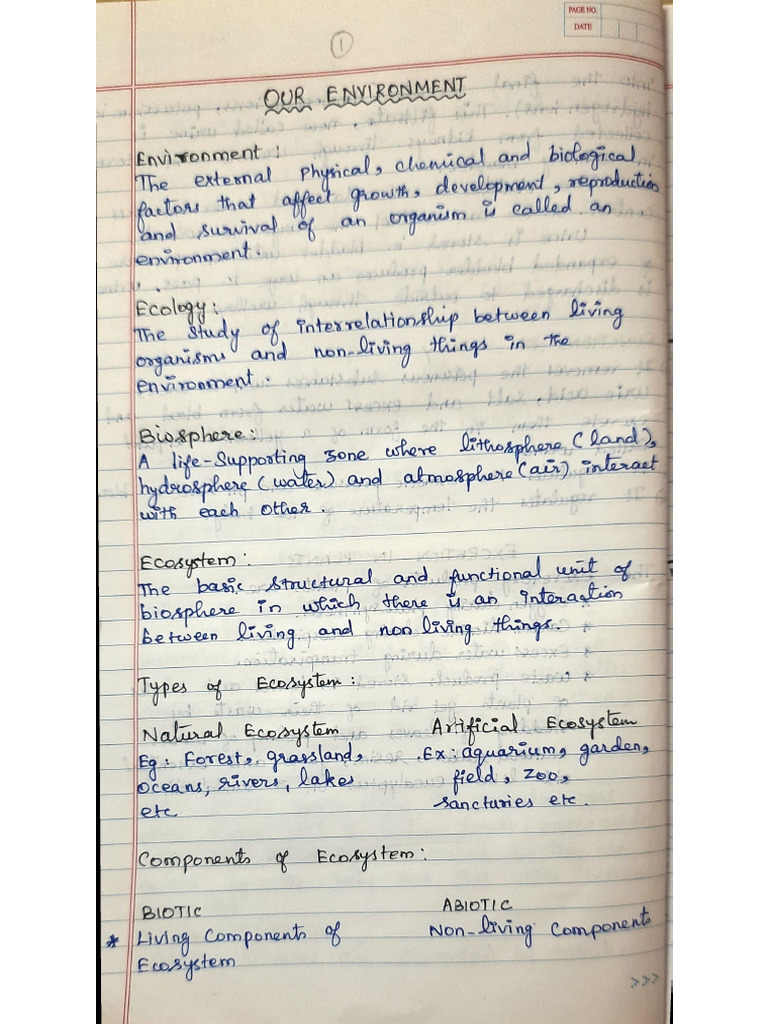 PAGE NO.
DATE
1
OUR ENVIRONMENT
Environment:
The external physical, chemical and biological
factors that affect growth, development, reproduction
and survival of an organism is called an
environment.
Ecology:
The study of interrelationship between living
organisms and non-living things in the
environment.
Biosphere:
A life-Supporting zone where lithosphere (land),
hydrosphere (water) and atmosphere (air) interact
with each other.
Ecosystem:
The basic structural and functional unit of
biosphere in which there is an interaction
between living and non living things.
Types of Ecosystem:
Natural Ecosystem Artificial Ecosystem
Eg: Forest, grassland, Ex: aquarium, garden,
oceans, rivers, lakes field, zoo,
etc sancturies etc.
Components of Ecosystem:
BIOTIC ABIOTIC
* Living Components of Non-living Components
Ecosystem
>>>